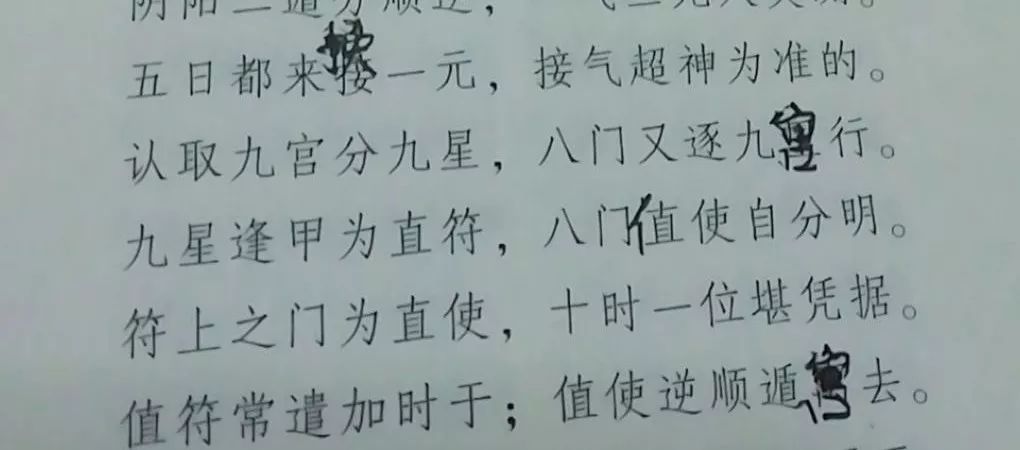 阴阳二遁分顺逆，气三元人莫测。
五日都来换一元，接气超神为准的。
认取九宫分九星，八门又逐九宫行。
九星逢甲为直符，八门值使自分明。
符上之门为直使，十时一位堪凭据。
值符常遣加时于；值使逆顺遁宫去。